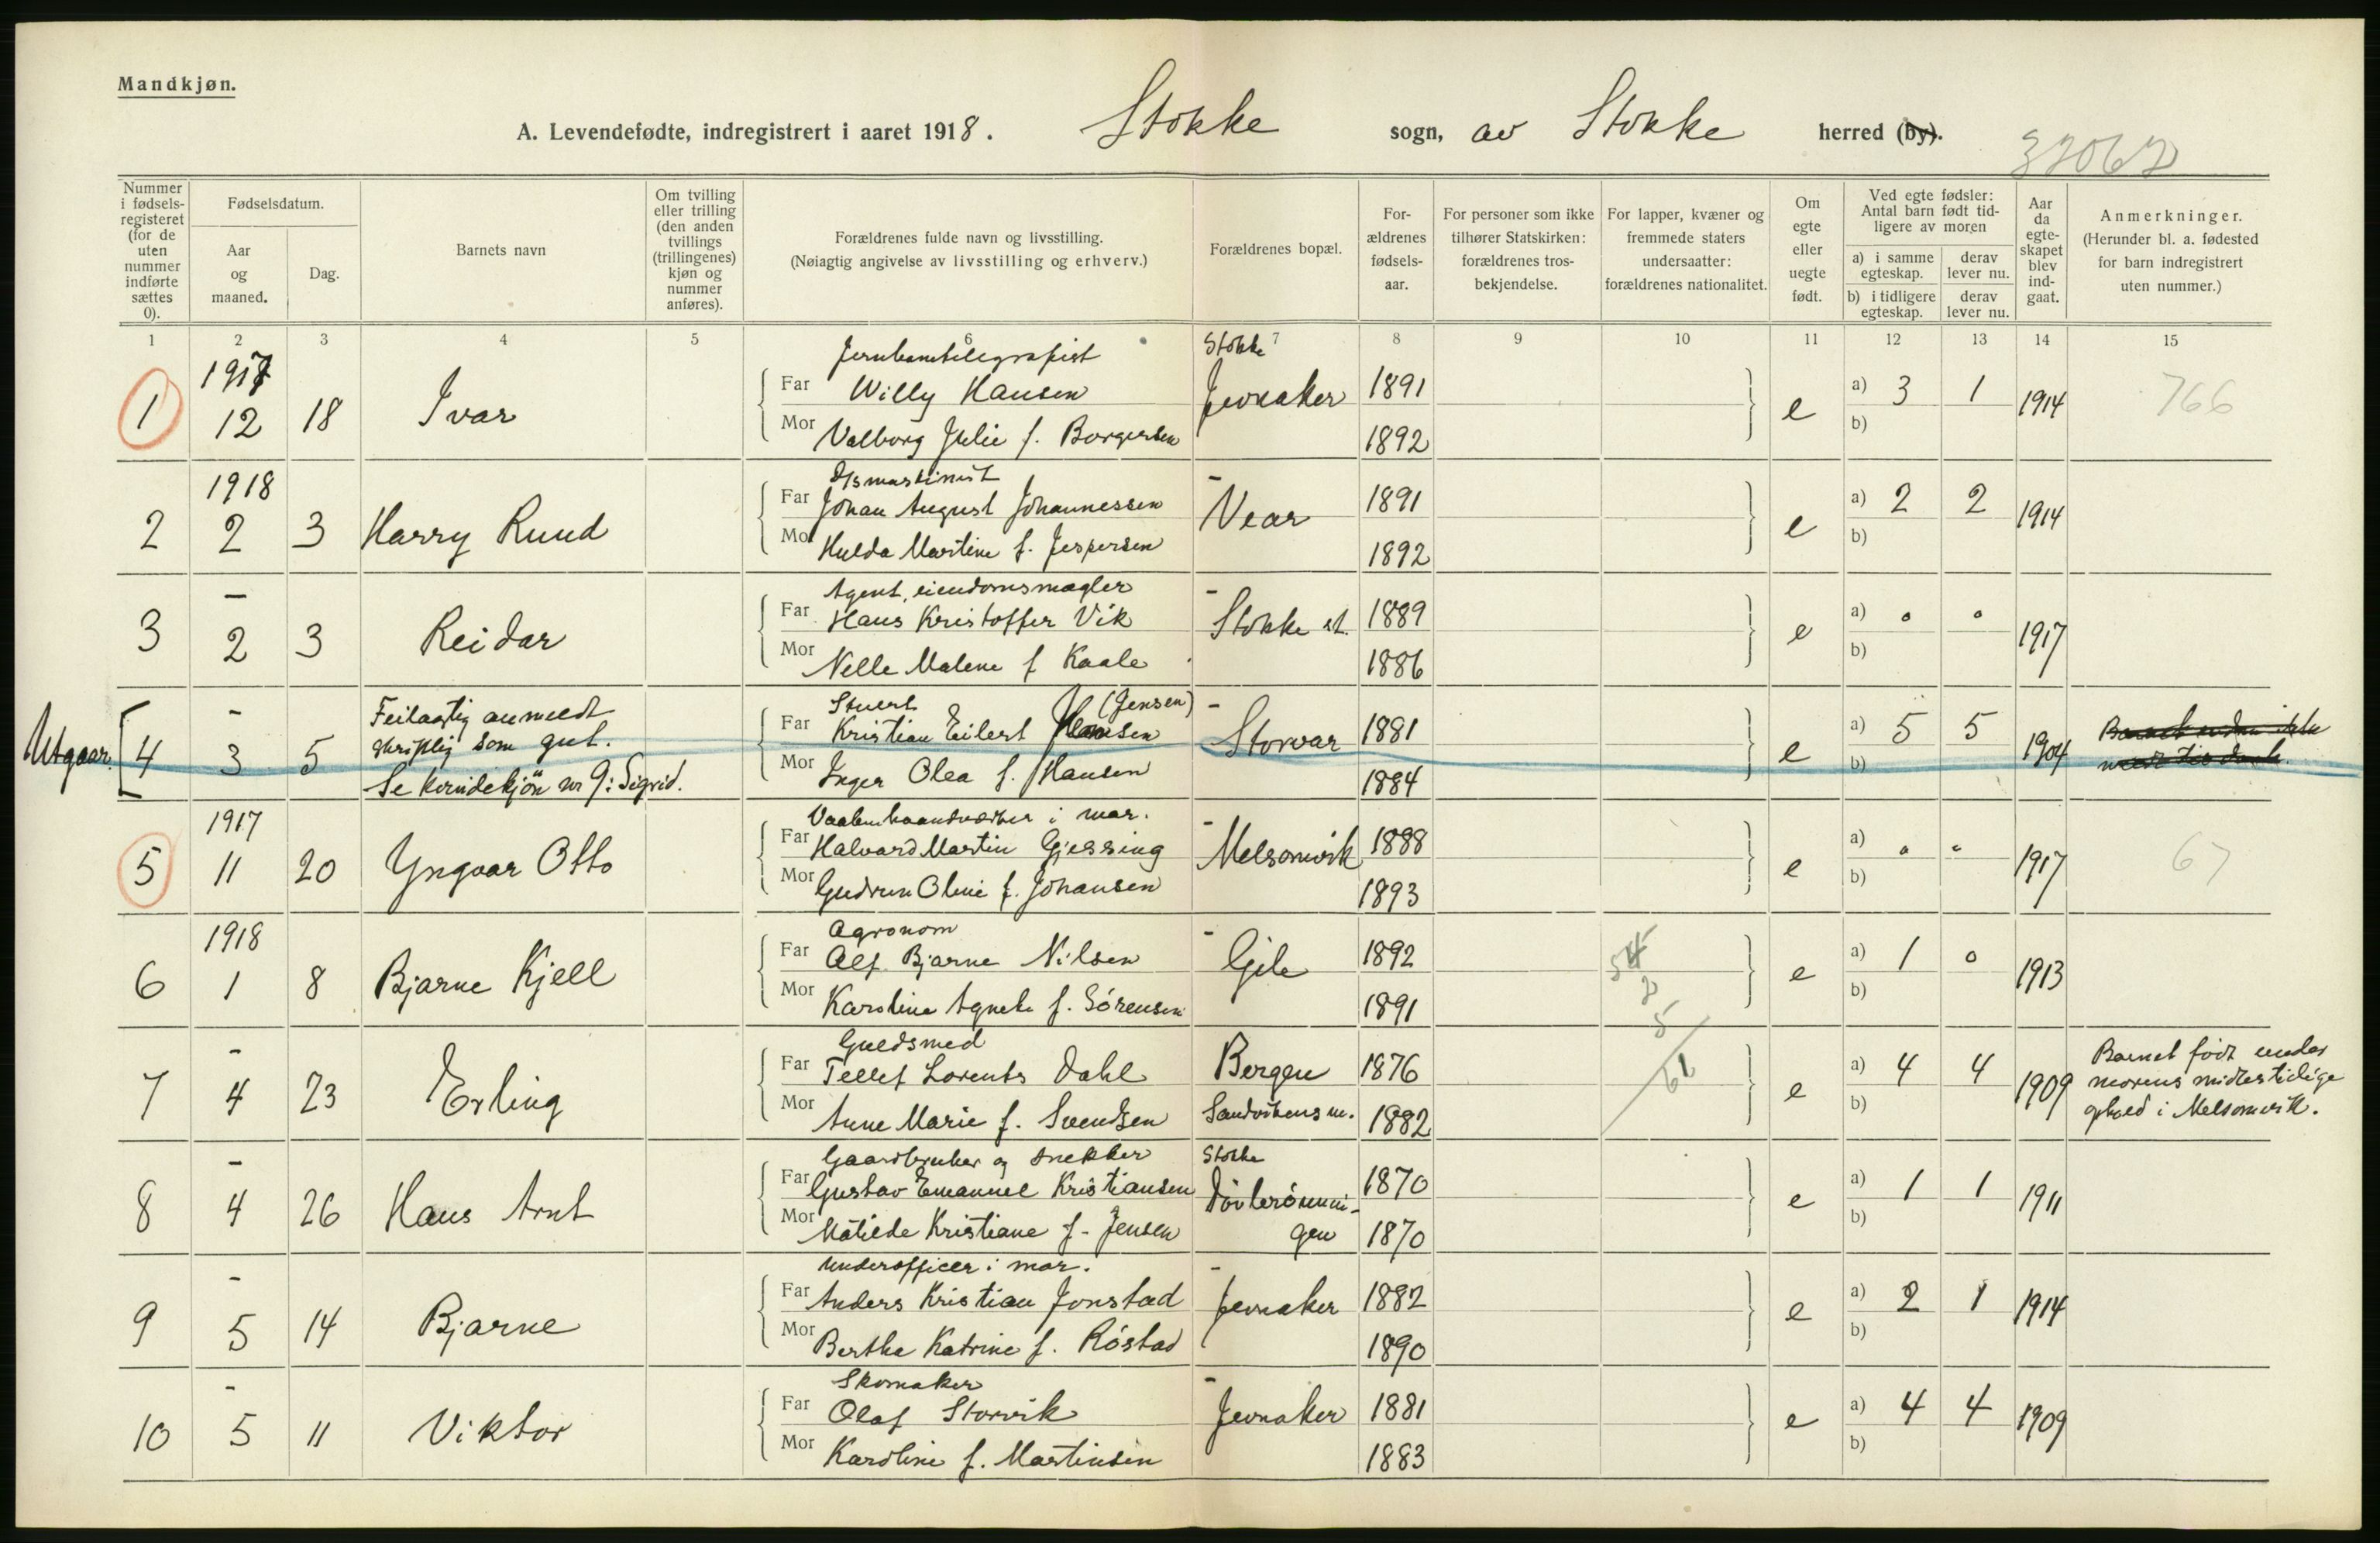 Mandkjøn.
A. Levendefødte, indregistrert i aaret 1918. Stokke sogn, av Stokke herred (by).
Nummer i fødsels-registeret (for de uten nummer indførte sættes 0).
Fødselsdatum.
Aar og maaned.
Dag.
Barnets navn
Om tvilling eller trilling (den anden tvillings (trillingenes) kjøn og nummer anføres).
Forældrenes fulde navn og livsstilling.
(Nøiagtig angivelse av livsstilling og erhverv.)
Forældrenes bopæl.
For-ældrenes fødsels-aar.
For personer som ikke tilhører Statskirken: forældrenes tros-bekjendelse.
For lapper, kvæner og fremmede staters undersaatter: forældrenes nationalitet.
Om egte eller uegte født.
Ved egte fødsler: Antal barn født tid-ligere av moren
a) i samme egteskap. derav lever nu.
b) i tidligere egteskap. derav lever nu.
Aar da egte-skapet blev ind-gaat.
Anmerkninger.
(Herunder bl. a. fødested for barn indregistrert uten nummer.)
1 2 3 4 5 6 7 8 9 10 11 12 13 14 15
1917 Jernbanetelegrafist Stokke
Far Willy Hansen Jevnaker 1891 a) 3 1
1 12 18 Ivar e 1914 766
Mor Valborg Julie f. Borgersen 1892 b)
1918
Far Johan August Johannessen Vear 1891 a) 2 2
2 2 3 Harry Ruud e 1914
Mor Hulda Martine f. Jespersen 1892 b)
– Agent, eiendomsmægler –
Far Hans Kristoffer Vik Stokke st. 1889 a) 0 0
3 2 3 Reidar e 1917
Mor Nelle Malene f Kaale 1886 b)
– Feilagtig anmeldt Stuert (Jensen) –
Far Kristian Eilert Storvar 1881 a) 5 5
Utgaar. 4 3 5 skriftlig som gut. e 1904
Se kvindekjøn nr 9: Sigrid. Mor Inger Olea f. Hansen 1884 b)
1917 Vaabenhaandverker i mar. –
Far Halvard Martin Gjessing Melsomvik 1888 a) 0 0
5 11 20 Yngvar Otto e 1917 67
Mor Gudrun Oline f. Johansen 1893 b)
1918 Agronom –
Far Alf Bjarne Nilsen Gile 1892 a) 1 0
6 1 8 Bjarne Kjell e 1913
Mor Karoline Agnete f. Sørensen 1891 b)
– Guldsmed
Far Tellef Lorents Dahl Bergen 1876 a) 4 4 Barnet født under
7 4 23 Erling e 1909 morens midlertidige
Mor Anne Marie f. Svendsen Sandvikens m. 1882 b) ophold i Melsomvik.
– Gaardbruker og snekker Stokke
Far Gustav Emanuel Kristiansen 1870 a) 1 1
8 4 26 Hans Arnt e 1911
Mor Matilde Kristiane f. Jensen gen 1870 b)
– Underofficer i mar. –
Far Anders Kristian Jonstad Jevnaker 1882 a) 2 1
9 5 14 Bjarne e 1914
Mor Berthe Katrine f. Røstad 1890 b)
– Skomaker –
Far Olaf Storvik Jevnaker 1881 a) 4 4
10 5 11 Viktor e 1909
Mor Karoline f. Martinsen 1883 b)